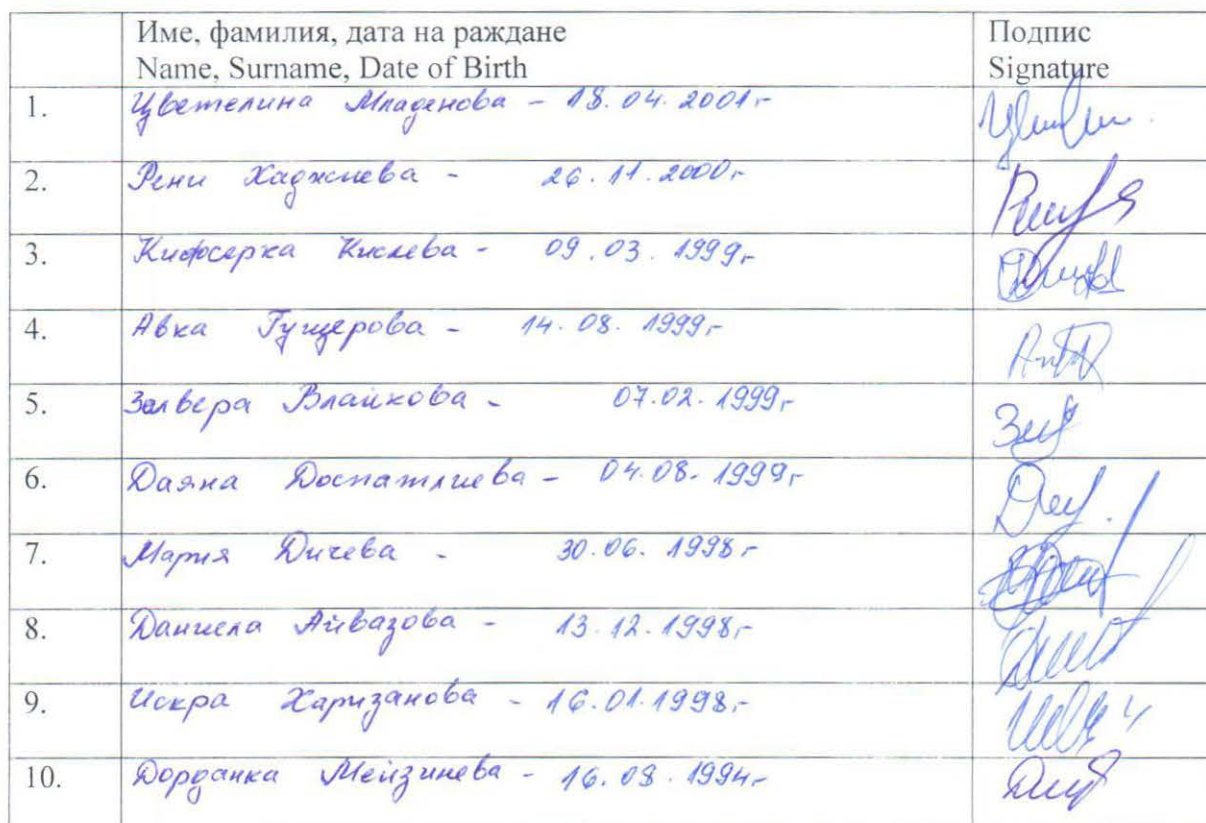 Име, фамилия, дата на раждане
Name, Surname, Date of Birth
Подпис
Signature
1. Цветелина Младенова - 18.04.2001г
2. Рени Хаджиева - 26.11.2000г
3. Киева - 09.03.1999г
4. Авка Гущерова - 14.08.1999г
5. Влайкова - 07.02.1999г
6. Даяна Доспатлиева - 04.08.1999г
7. Мария Дичева - 30.06.1998г
8. Даниела Айвазова - 13.12.1998г
9. Искра Харизанова - 16.01.1998г
10. Дорданка Мейзинева - 16.08.1994г